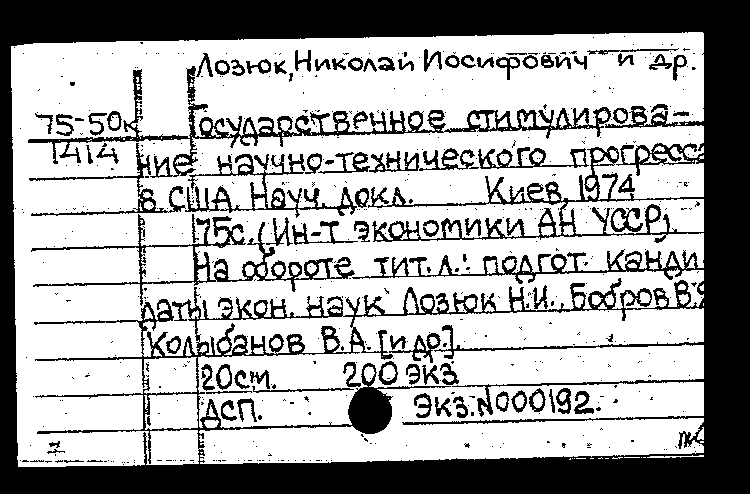 Лозюк, Николай Иосифович и др.
75-50к
1414
Государственное стимулирова-
ние научно-технического прогресса
в США. Науч. докл. Киев, 1974
75с. (Ин-т экономики АН УССР).
На обороте тит. л.: подгот. канди
даты экон. наук Лозюк Н.И., Бобров В.Я
Колыбанов В.А. [и др.].
20см. 200 экз.
ДСП. Экз. N000192.